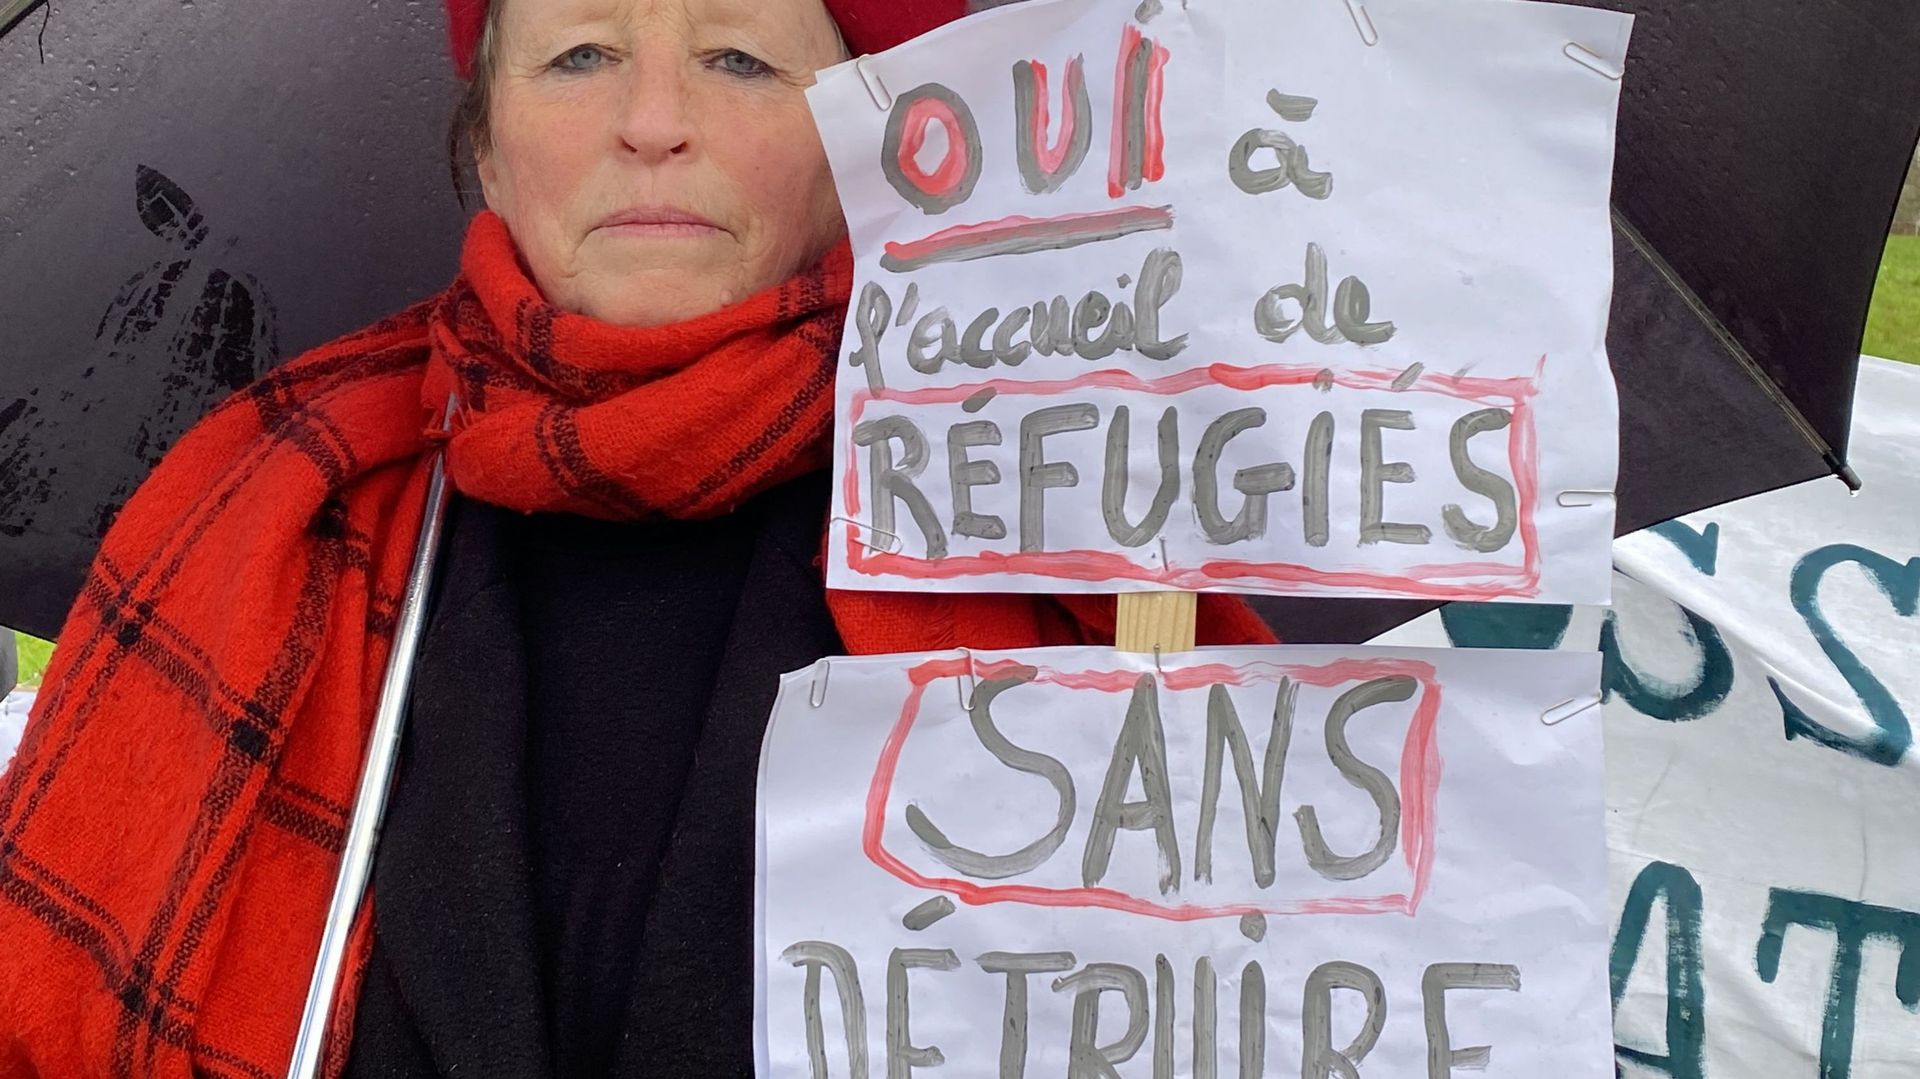 OUi à
l'accueil de
RÉFUGiÉS
SANS
DÉTRUiRE